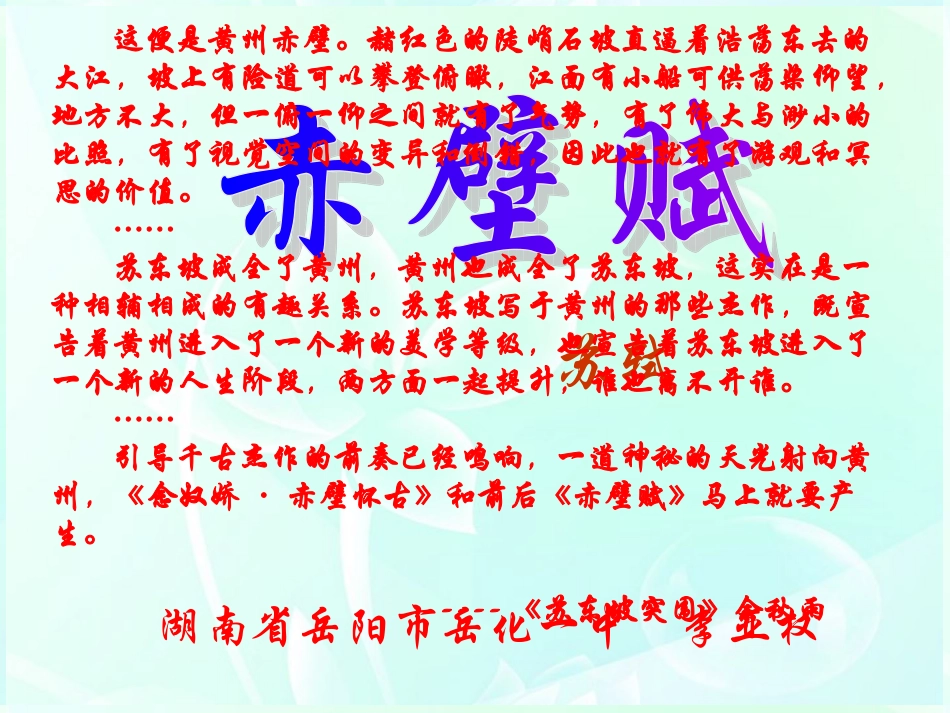 这便是黄州赤壁。赭红色的陡峭石坡直逼着浩荡东去的
大江，坡上有险道可以攀登俯瞰，江面有小船可供荡桨仰望，
地方不大，但一俯一仰之间就有了气势，有了伟大与渺小的
比照，有了视觉空间的变异和倒错，因此也就有了游观和冥
思的价值。
赤壁赋
……
苏东坡成全了黄州，黄州也成全了苏东坡，这实在是一
种相辅相成的有趣关系。苏东坡写于黄州的那些杰作，既宣
告着黄州进入了一个新的美学等级，也宣告着苏东坡进入了
一个新的人生阶段，两方面一起提升，谁也离不开谁。
苏轼
……
引导千古杰作的前奏已经鸣响，一道神秘的天光射向黄
州，《念奴娇·赤壁怀古》和前后《赤壁赋》马上就要产
生。
----《苏东坡突围》余秋雨
湖南省岳阳市岳化一中 李